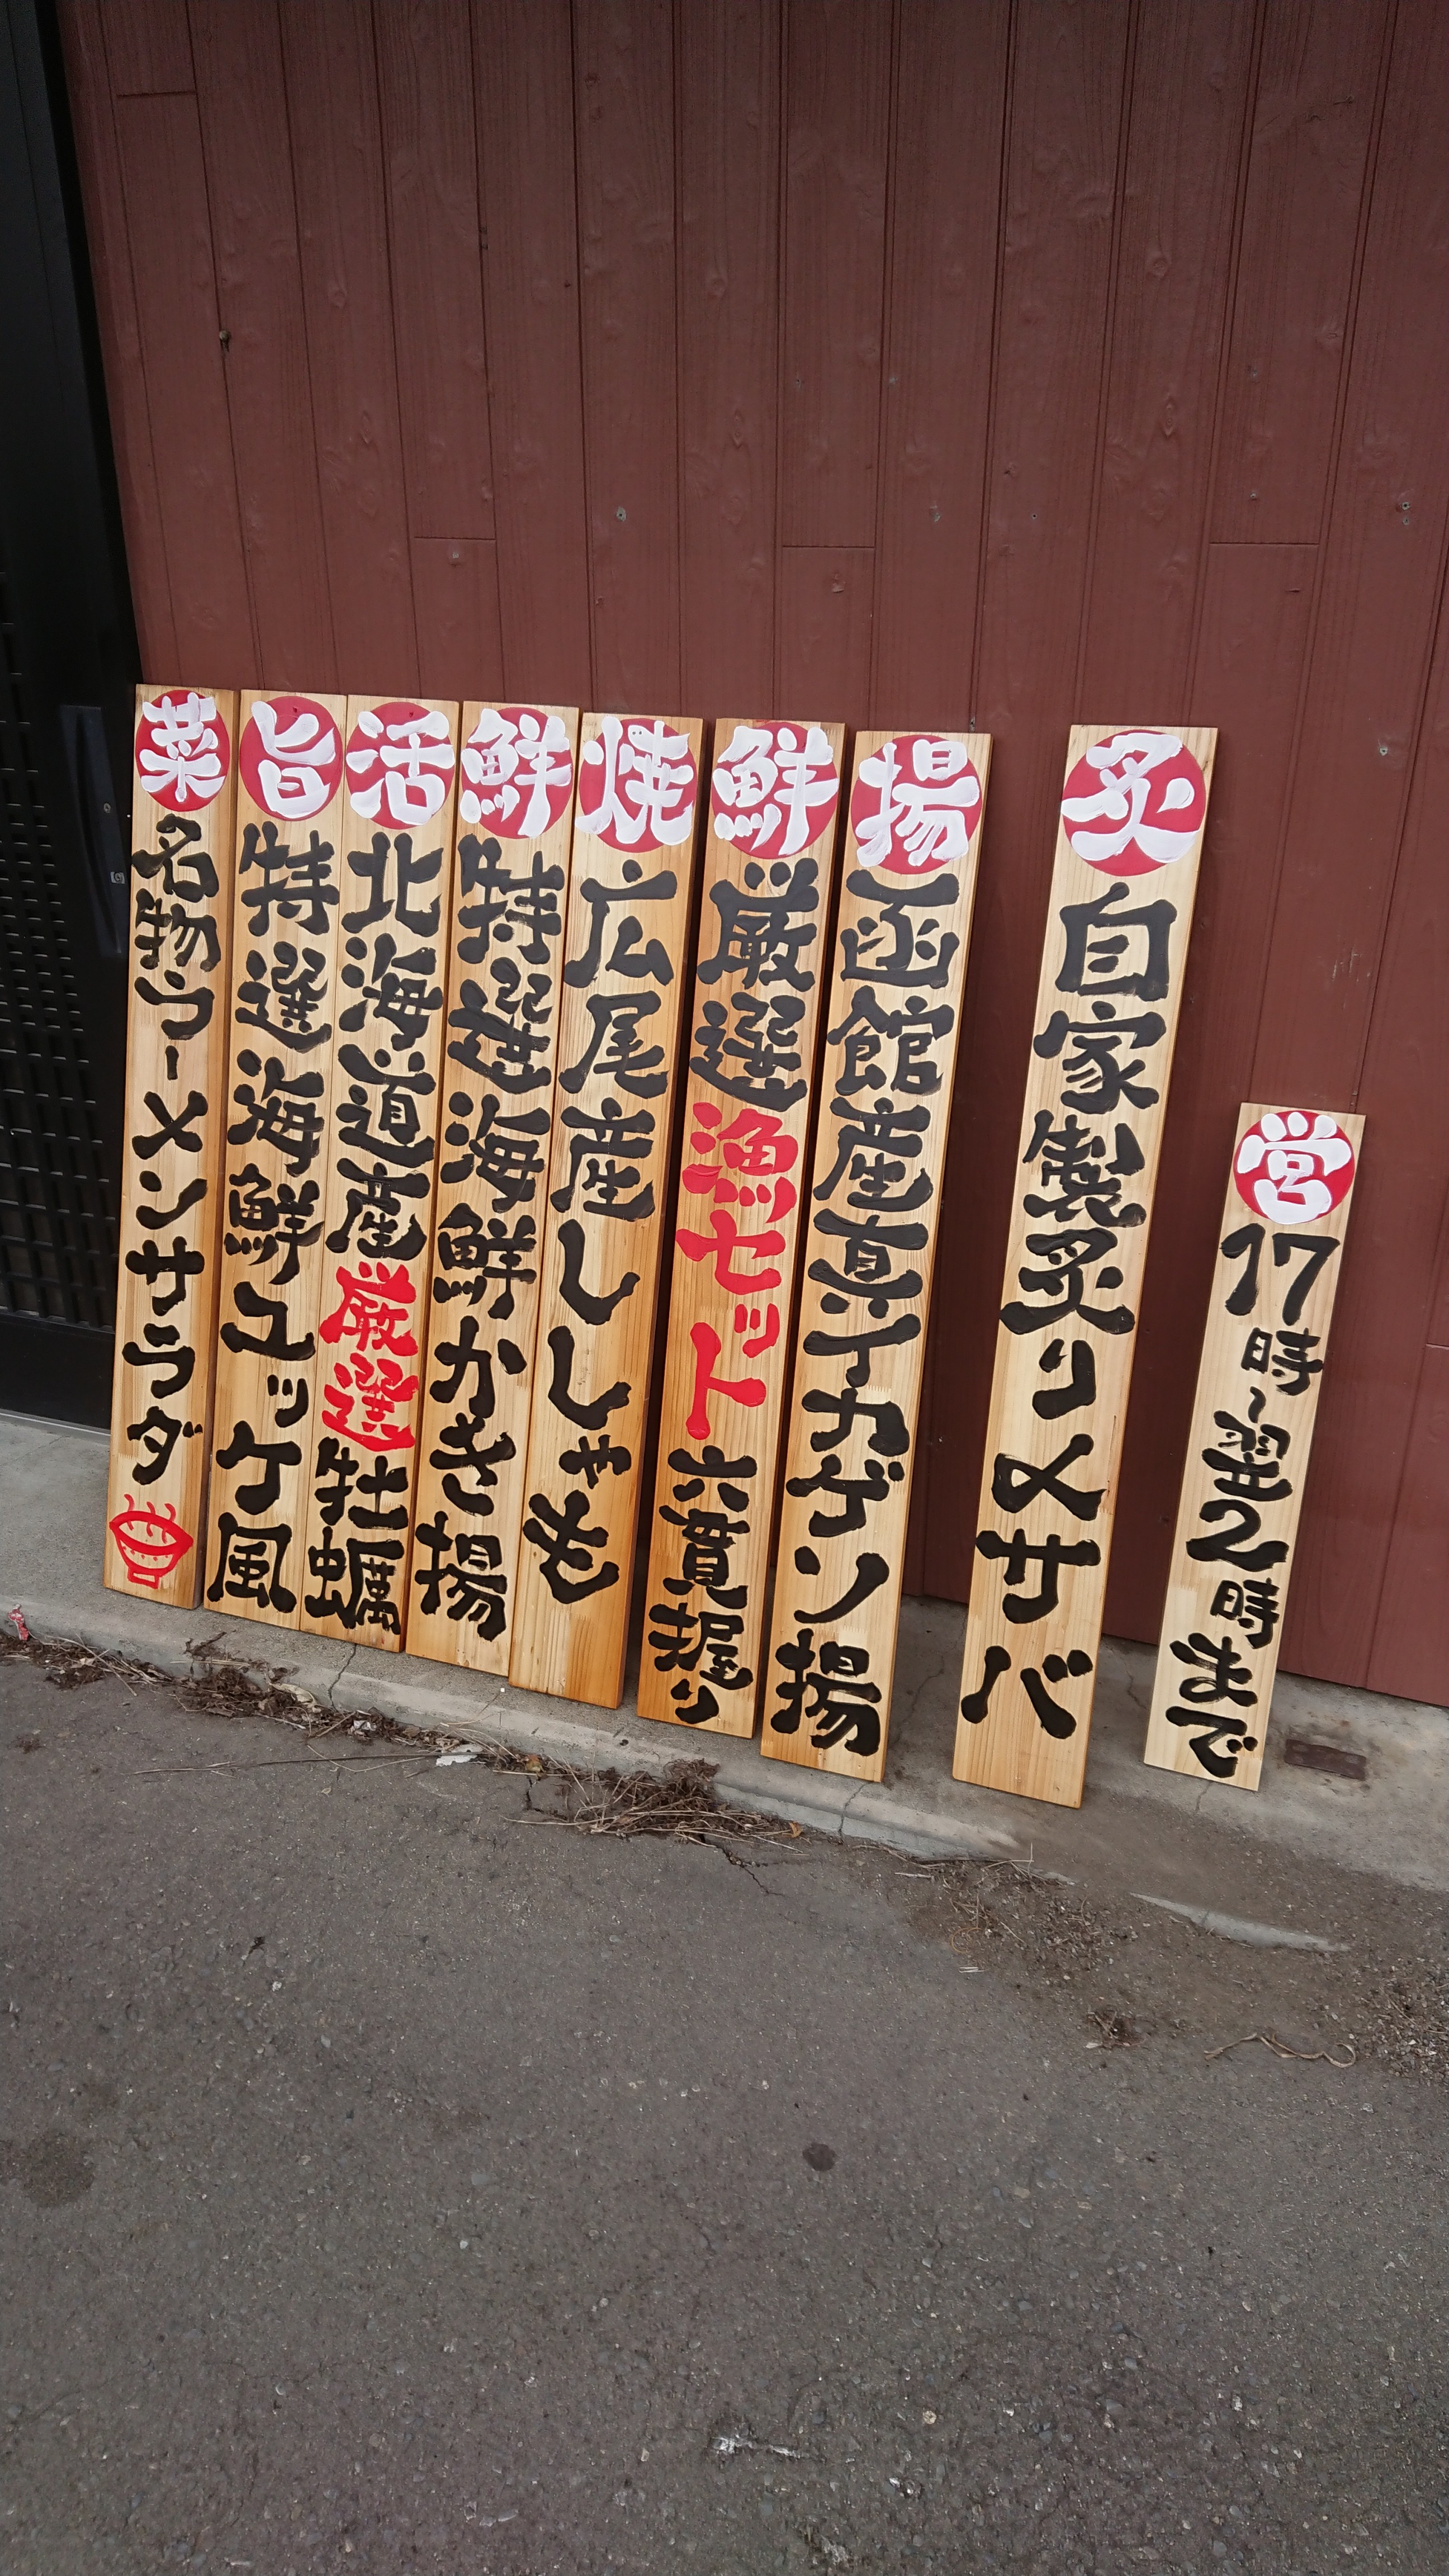 営 17時～翌2時まで
炙 自家製炙り〆サバ
揚 函館産真イカゲソ揚
鮮 厳選漁セット六貫握り
焼 広尾産ししゃも
鮮 特選海鮮かき揚
活 北海道産厳選牡蠣
旨 特選海鮮ユッケ風
菜 名物ラーメンサラダ